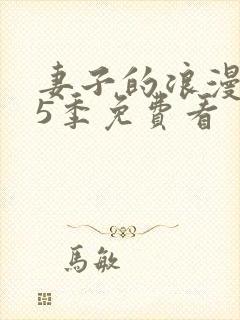 妻子的浪漫
5季免費看
馬敏